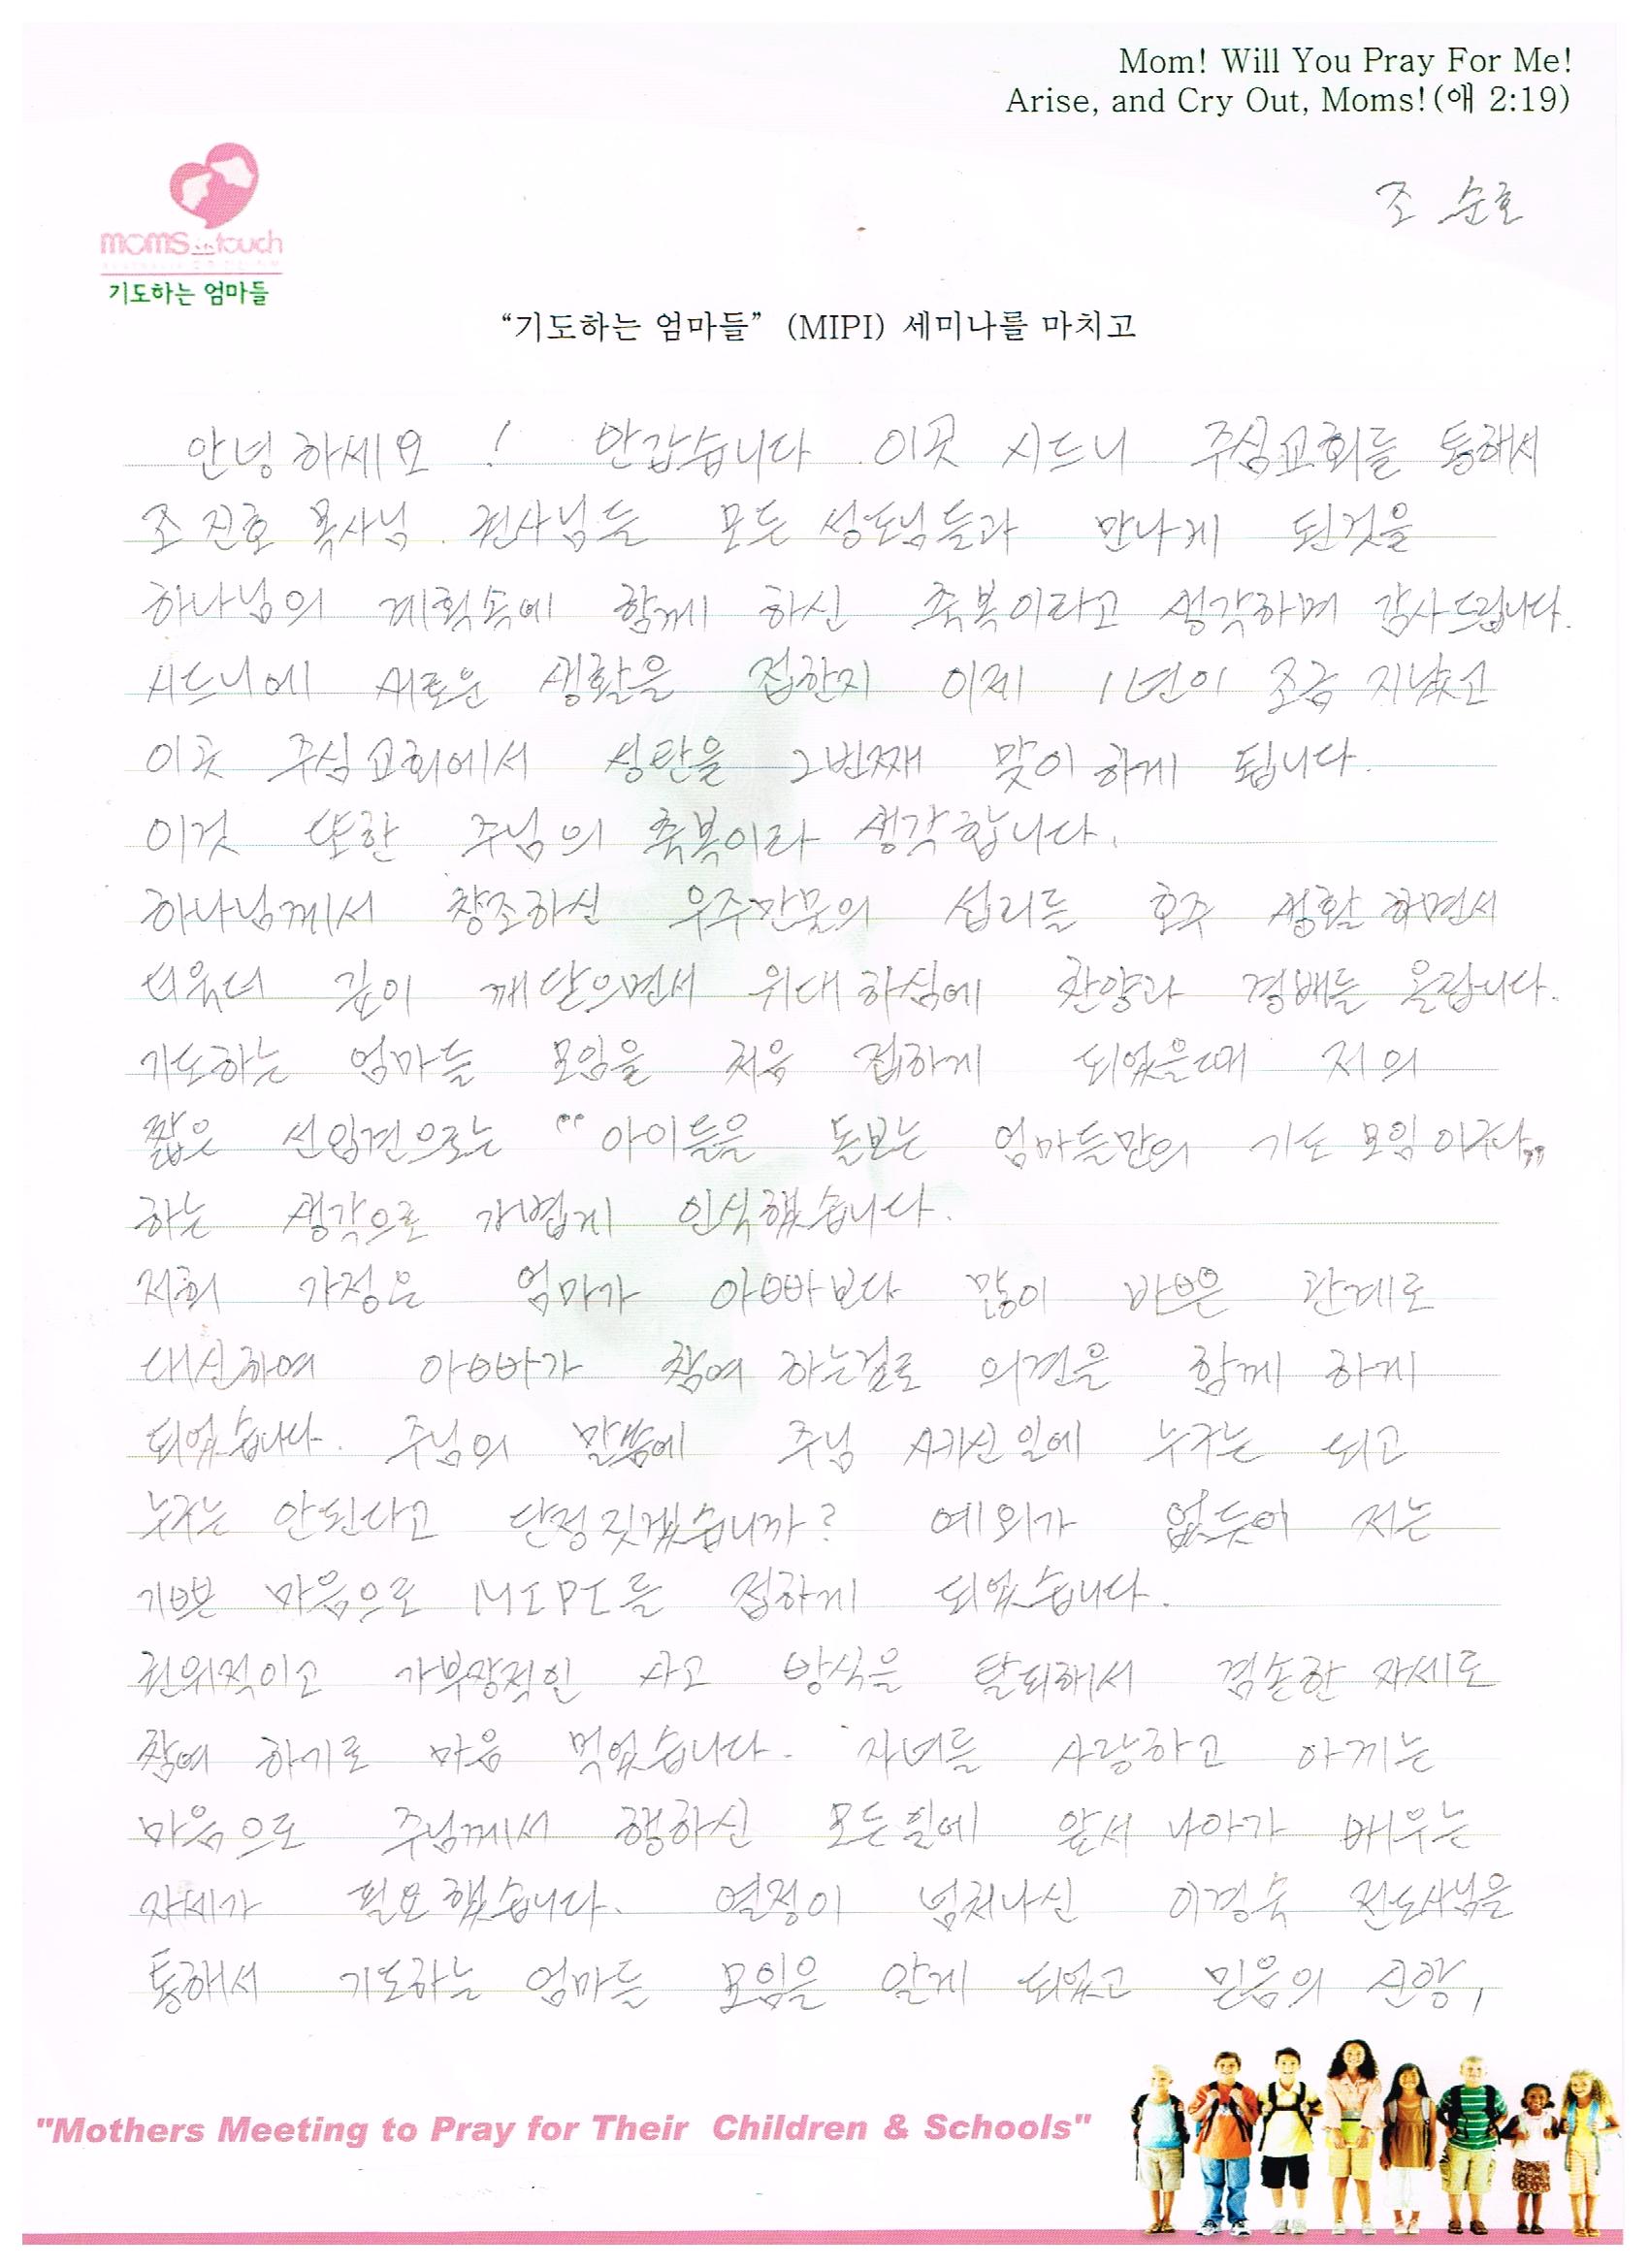 Mom! Will You Pray For Me!
Arise, and Cry Out, Moms!(애 2:19)
조 순호
moms in touch
기도하는 엄마들
“기도하는 엄마들” (MIPI) 세미나를 마치고
안녕하세요 ! 반갑습니다 이곳 시드니 주심교회를 통해서
조진호 목사님. 권사님들 모든 성도님들과 만나게 된것을
하나님의 계획속에 함께 하신 축복이라고 생각하며 감사드립니다.
시드니에 새로운 생활을 접한지 이제 1년이 조금 지났고
이곳 주심교회에서 성탄을 2번째 맞이하게 됩니다.
이것 또한 주님의 축복이라 생각합니다.
하나님께서 창조하신 우주만물의 섭리를 호주 생활하면서
더욱더 깊이 깨달으면서 위대하심에 찬양과 경배를 올립니다.
기도하는 엄마들 모임을 처음 접하게 되었을때 저의
짧은 선입견으로는 “아이들을 돌보는 엄마들만의 기도 모임이겠다”
하는 생각으로 가볍게 인식했습니다.
저희 가정은 엄마가 아빠보다 많이 바쁜 관계로
대신하여 아빠가 참여 하는걸로 의견을 함께 하게
되었습니다. 주님의 말씀에 주님 시키신일에 누구는 되고
누구는 안된다고 단정짓겠습니까? 예외가 없듯이 저는
기쁜 마음으로 MIPI를 접하게 되었습니다.
권위적이고 가부장적인 사고 방식을 탈퇴해서 겸손한 자세로
참여 하기로 마음 먹었습니다. 자녀를 사랑하고 아끼는
마음으로 주님께서 행하신 모든일에 앞서 나아가 배우는
자세가 필요했습니다. 열정이 넘쳐나신 이경숙 전도사님을
통해서 기도하는 엄마들 모임을 알게 되었고 믿음의 신앙,
"Mothers Meeting to Pray for Their Children & Schools"